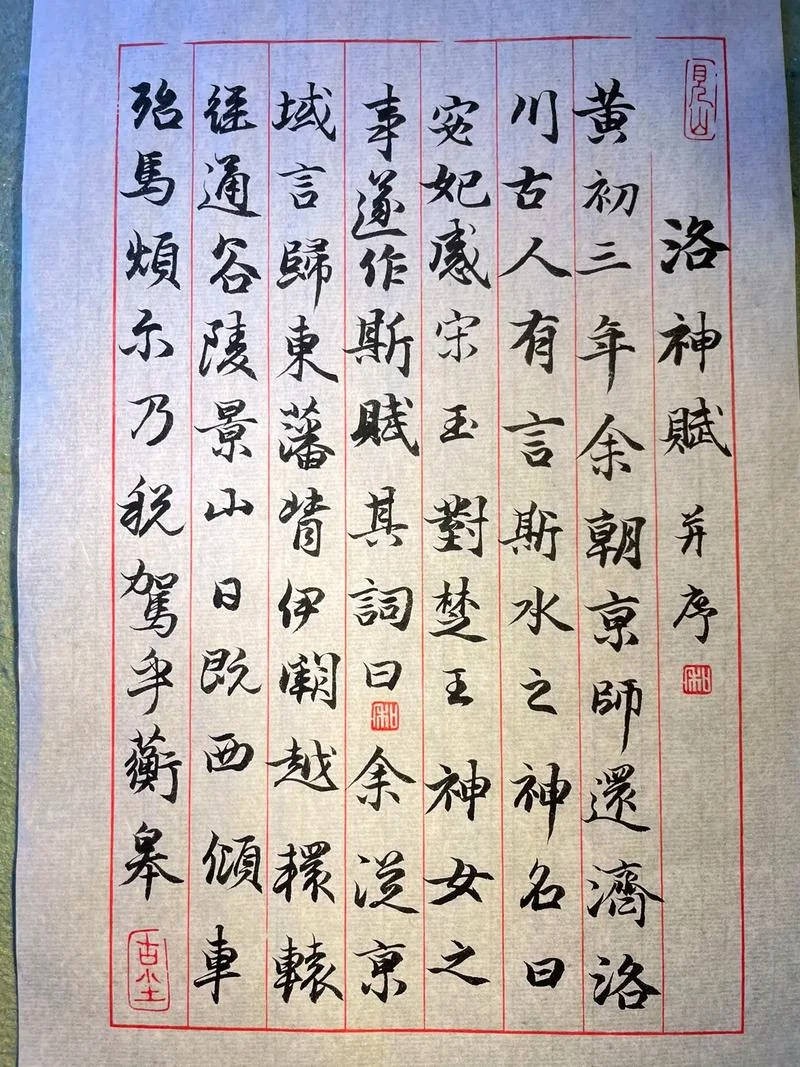 見山
洛神賦 并序
黄初三年余朝亰師還濟洛
川古人有言斯水之神名曰
宓妃感宋玉對楚王神女之
事遂作斯賦其詞曰余從亰
域言歸東藩背伊闕越轘轅
經通谷陵景山日既西傾車
殆馬煩尓乃税駕乎蘅皋